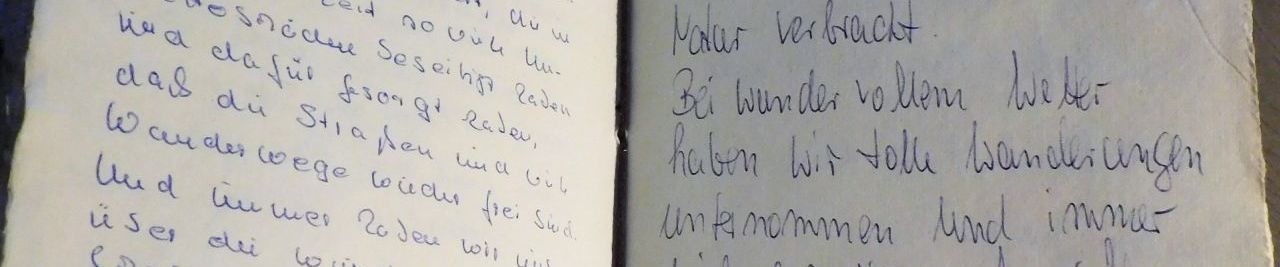 zeit so viele Un-
beseitigt haben
und dafür gesorgt haben,
daß die Straßen und viele
Wanderwege wieder frei sind.
Und immer haben wir uns
über die
Natur verbracht.
Bei wundervollem Wetter
haben wir tolle Wanderungen
unternommen und immer